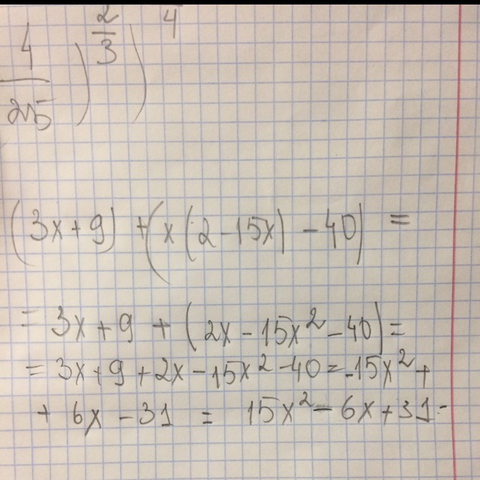 (4/25)^(2/3))^4
(3x+9)+(x(2-15x)-40) =
= 3x+9+(2x-15x²-40) =
= 3x+9+2x-15x²-40=-15x²+
+6x-31 = 15x²-6x+31-